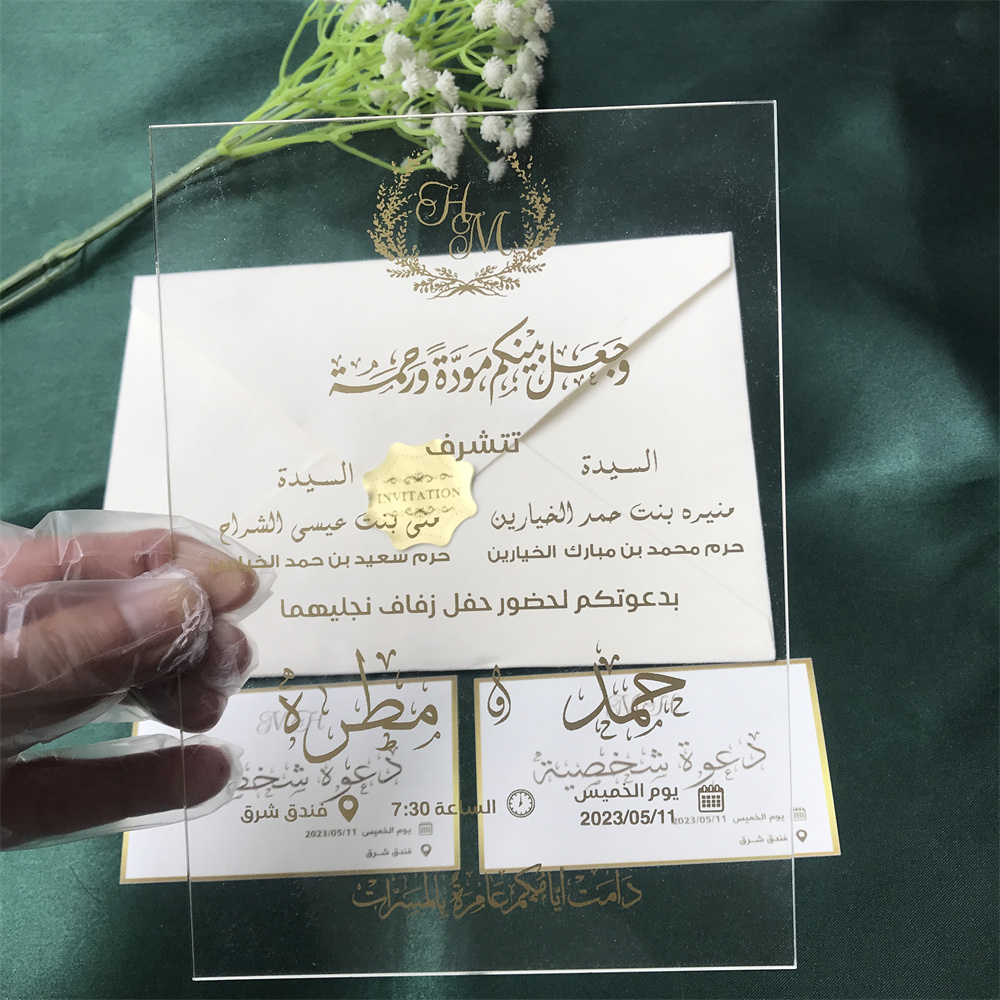 H M
وَجَعَلَ بَيْنَكُم مَوَدَّةً وَرَحْمَةً
تتشرف
السيدة
منيره بنت حمد الخيارين
حرم محمد بن مبارك الخيارين
السيدة
منى بنت عيسى الشراح
حرم سعيد بن حمد
INVITATION
بدعوتكم لحضور حفل زفاف نجليهما
حمد و مطره
يوم الخميس
2023/05/11
الساعة 7:30
فندق شرق
دَامَت أيَّامُكُم عَامِرَةً بِالمَسَرَّات
دعوة شخصية
يوم الخميس 2023/05/11
فندق شرق
دعوة
يوم الخميس 2023/05/11
فندق شرق